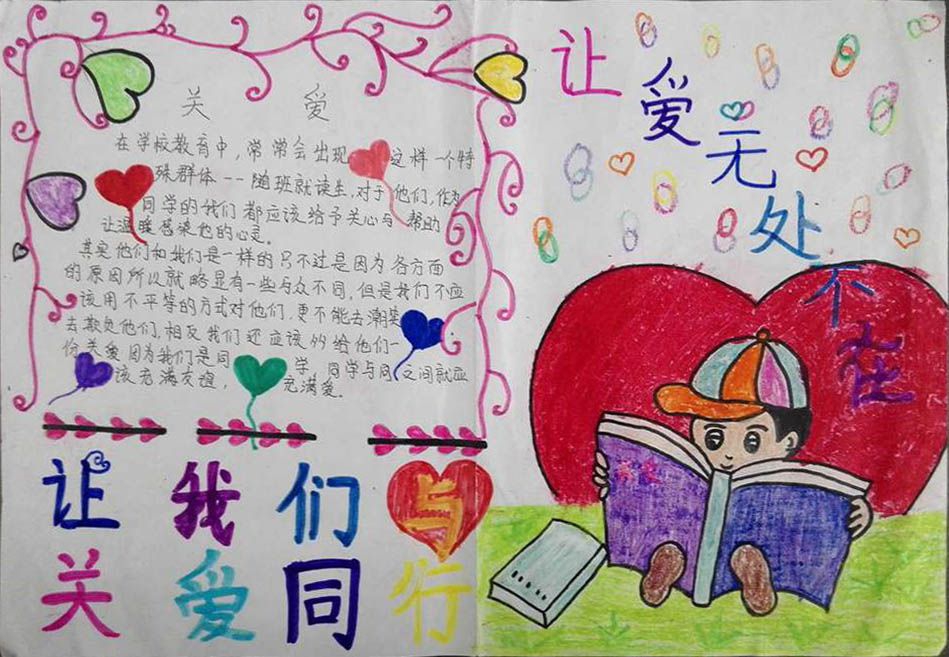 关 爱
在学校教育中，常常会出现 这样一个特
殊群体--随班就读生，对于他们，作为
同学的我们都应该给予关心与帮助
让温暖感染他的心灵。
其实他们和我们是一样的只不过是因为各方面
的原因所以就略显有一些与众不同，但是我们不应
该用不平等的方式对他们，更不能去潮笑
去欺负他们，相反我们还应该的给他们一
份关爱因为我们是同 学，同学与同 之间就应
该充满友谊， 充满爱。
让我们与
关爱同行
让爱无处不在